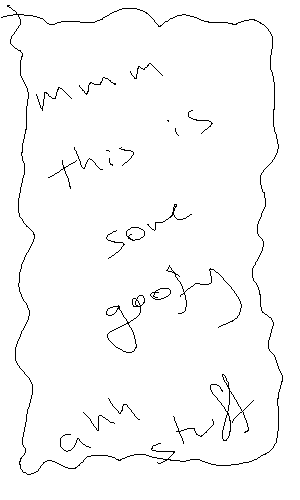 mmm
this is
some
goofy
ahh stuff